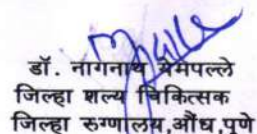 डॉ. नागनाथ यमपल्ले
जिल्हा शल्य चिकित्सक
जिल्हा रुग्णालय,औंध,पुणे